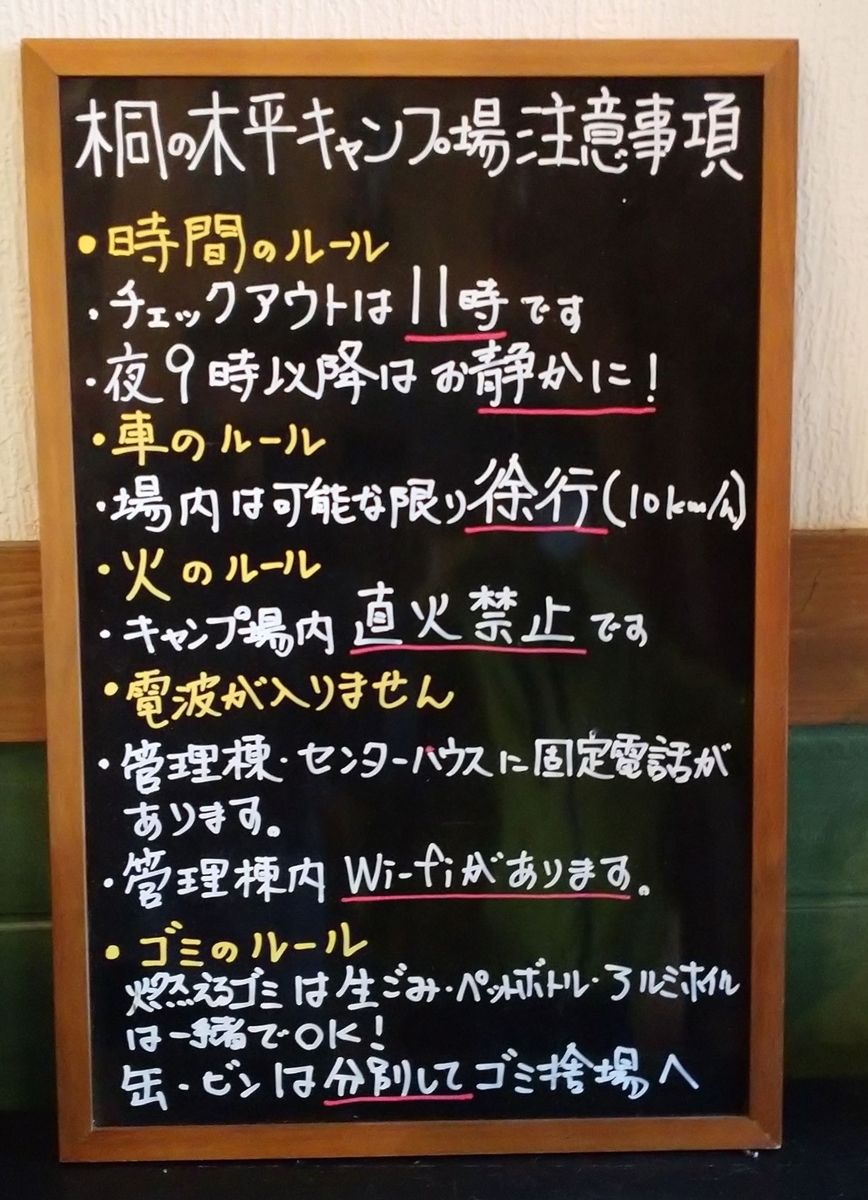 桐の木平キャンプ場注意事項
・時間のルール
・チェックアウトは11時です
・夜9時以降はお静かに！
・車のルール
・場内は可能な限り徐行(10km/h)
・火のルール
・キャンプ場内直火禁止です
・電波が入りません
・管理棟・センターハウスに固定電話が
あります。
・管理棟内Wi-fiがあります。
・ゴミのルール
燃えるゴミは生ごみ・ペットボトル・アルミホイル
は一緒でOK！
缶・ビンは分別してゴミ捨場へ